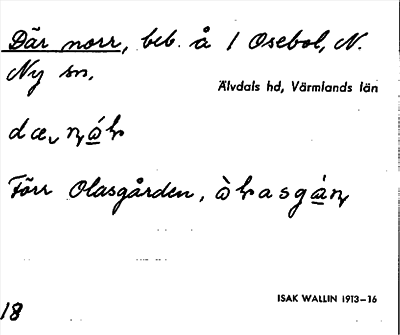 Där norr, beb. å 1 Osebol, N.
Ny sn.
Älvdals hd, Värmlands län
Förr Olasgården,
ISAK WALLIN 1913–16
18